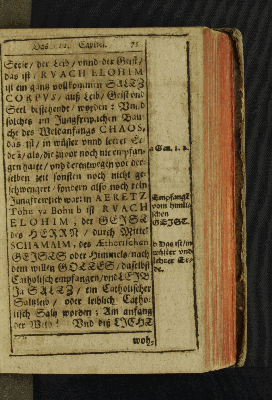 Das 10. Capitel. 75
Seele / der Leib / vnnd der Geist /
das ist / RVACH ELOHIM
ist ein gantz vollkommen SALTZ
CORPVS / auß Leib / Geist vnd
Seel bestehende / worden : Vnnd
solches im Jungfrewlichen Bau-
che des Weltanfangs CHAOS,
das ist / in wüster vnnd leerer Er-
de a / als / die zuvor noch nie empfan-
gen hatte / vnd derentwegen vor der-
selben zeit sonsten noch nicht ge-
schwengert / sondern also noch rein
Jungfrewlich war : in AERETZ
Tohu va Bohu b ist RVACH
ELOHIM, der GEIST
des HERRN / durch Mittel
SCHAMAIM, des Ætherischen
GEISTS oder Himmels / nach
dem willen GOTTES / daselbst
Catholisch empfangen / vnd LEIB
Ja SALTZ / ein Catholischer
Saltzleib / oder leiblich Catho-
lisch Saltz worden ; Am anfang
der Welt ! Vnd diß LICHT
woh-
a Gen. 1. 2.
Empfangt
vom himli-
schen
GEIST.
b Das ist / in
wüster vnd
lehrer Er-
de.